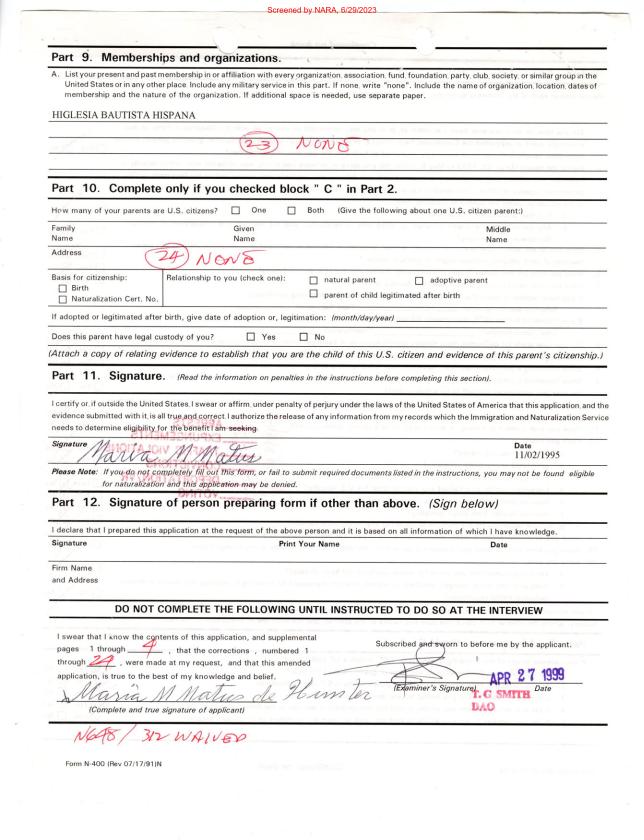 Screened by NARA, 6/29/2023
Part 9. Memberships and organizations.
A. List your present and past membership in or affiliation with every organization, association, fund, foundation, party, club, society, or similar group in the
United States or in any other place. Include any military service in this part. If none, write "none". Include the name of organization, location, dates of
membership and the nature of the organization. If additional space is needed, use separate paper.
HIGLESIA BAUTISTA HISPANA
23 NONE
Part 10. Complete only if you checked block " C " in Part 2.
How many of your parents are U.S. citizens? One Both (Give the following about one U.S. citizen parent:)
Family Given Middle
Name Name Name
Address
24 NONE
Basis for citizenship: Relationship to you (check one): natural parent adoptive parent
Birth
Naturalization Cert. No. parent of child legitimated after birth
If adopted or legitimated after birth, give date of adoption or, legitimation: (month/day/year)
Does this parent have legal custody of you? Yes No
(Attach a copy of relating evidence to establish that you are the child of this U.S. citizen and evidence of this parent's citizenship.)
Part 11. Signature. (Read the information on penalties in the instructions before completing this section).
I certify or, if outside the United States, I swear or affirm, under penalty of perjury under the laws of the United States of America that this application, and the
evidence submitted with it, is all true and correct. I authorize the release of any information from my records which the Immigration and Naturalization Service
needs to determine eligibility for the benefit I am seeking.
Signature Date
Maria M Matus 11/02/1995
Please Note: If you do not completely fill out this form, or fail to submit required documents listed in the instructions, you may not be found eligible
for naturalization and this application may be denied.
Part 12. Signature of person preparing form if other than above. (Sign below)
I declare that I prepared this application at the request of the above person and it is based on all information of which I have knowledge.
Signature Print Your Name Date
Firm Name
and Address
DO NOT COMPLETE THE FOLLOWING UNTIL INSTRUCTED TO DO SO AT THE INTERVIEW
I swear that I know the contents of this application, and supplemental
pages 1 through 4 , that the corrections , numbered 1
through 24 , were made at my request, and that this amended
application, is true to the best of my knowledge and belief.
Subscribed and sworn to before me by the applicant.
APR 27 1999
(Examiner's Signature) Date
T. C SMITH
DAO
Maria M Matus de Hunster
(Complete and true signature of applicant)
N648 / 312 WAIVED
Form N-400 (Rev 07/17/91)N